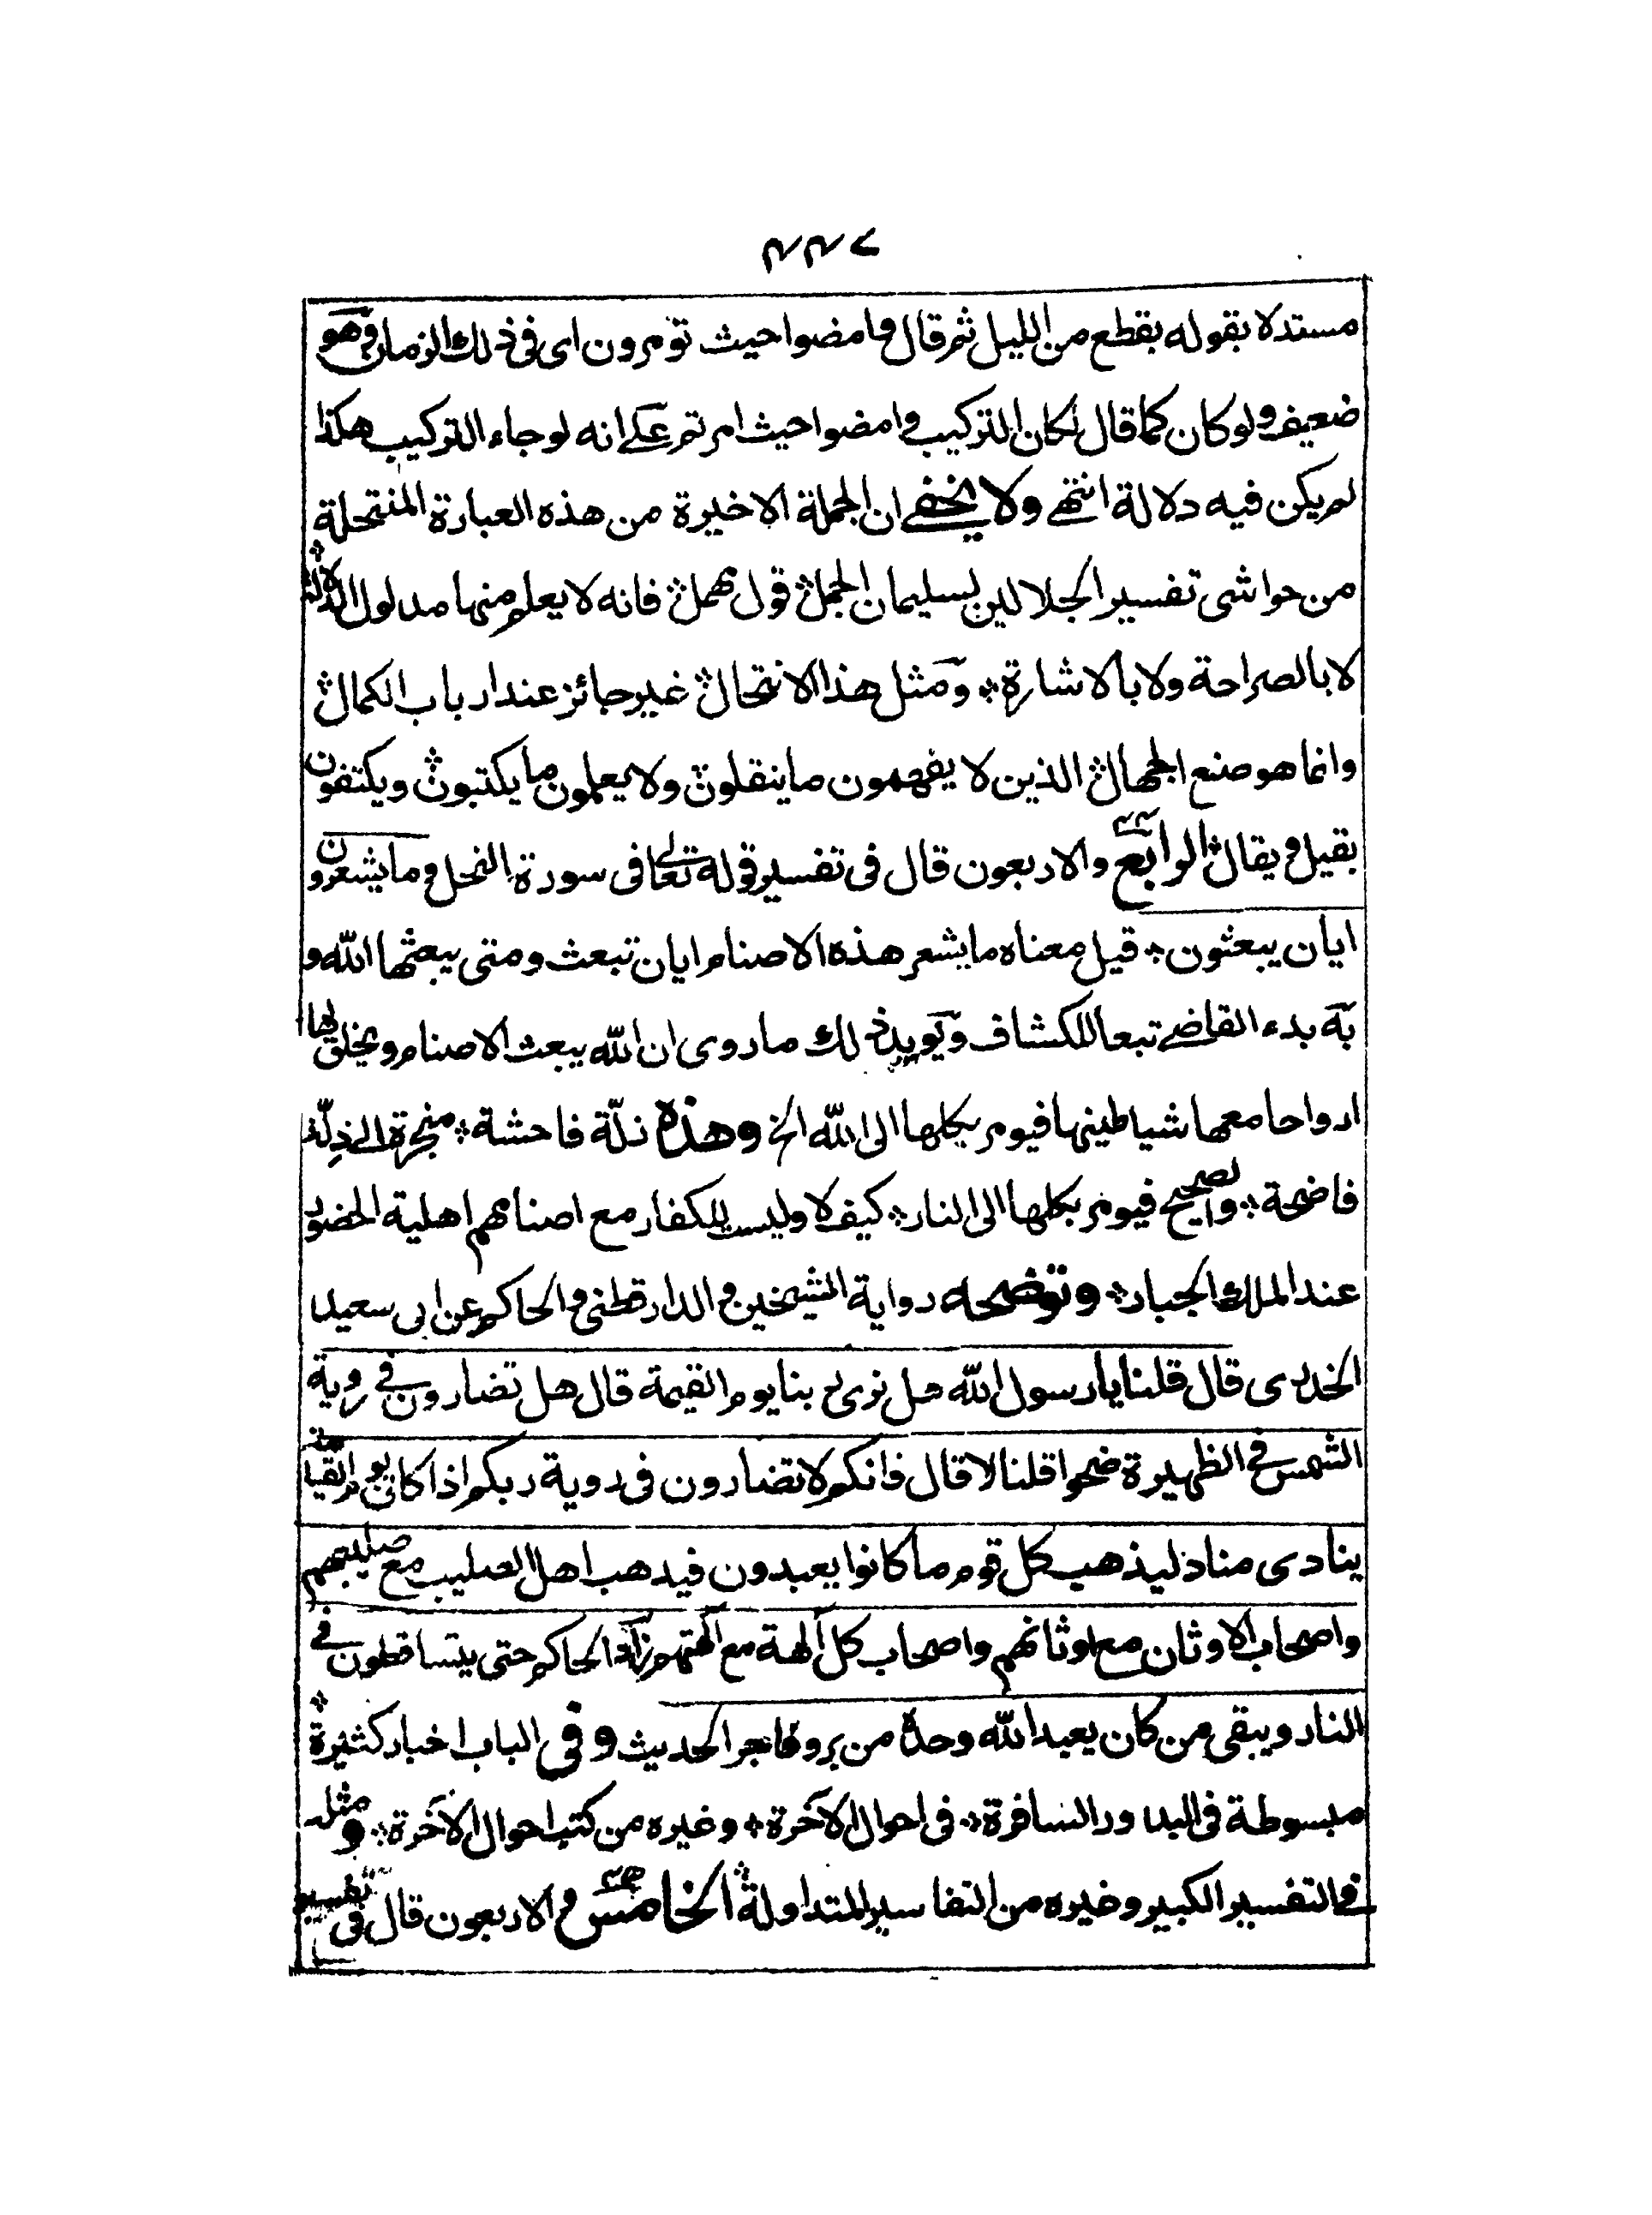 ۴۴۷
مستدلا بقوله بقطع من الليل ثم قال وامضوا حيث تؤمرون اى فى ذلك الزمان وهو
ضعيف ولو كان كما قال لكان التركيب وامضوا حيث امرتم على انه لو جاء التركيب هكذا
لم يكن فيه دلالة انتهى ولا يخفى ان الجملة الاخيرة من هذه العبارة المنتحلة
من حواشى تفسير الجلالين لسليمان الجمل ؞ قول مهمل ؞ فانه لا يعلم منها مدلول الدلالة ؞
لا بالصراحة ولا بالاشارة ؞ ومثل هذا الانتحال ؞ غير جائز عند ارباب الكمال ؞
وانما هو صنع الجهال ؞ الذين لا يفهمون ما ينقلون ؞ ولا يعلمون ما يكتبون ؞ ويكتفون
بقيل ويقال ؞ الرابع ۴۴ والاربعون قال فى تفسير قوله تعالى فى سورة النحل وما يشعرون
ايان يبعثون ؞ قيل معناه ما يشعر هذه الاصنام ايان تبعث ومتى يبعثها الله و
به بدء القاضى تبعا للكشاف ويويد ذلك ما روى ان الله يبعث الاصنام ويخلق لها
ارواحا معها شياطينها فيومر بكلها الى الله الخ وهذه زلّة فاحشة ؞ منجرة الى ذِلّة
فاضحة ؞ والصحيح فيومر بكلها الى النار ؞ كيف لا وليس للكفار مع اصنامهم اهلية الحضور
عند الملك الجبار ؞ وتوضحه رواية الشيخين والدارقطنى والحاكم عن ابى سعيد
الخدرى قال قلنا يا رسول الله هل نرى ربنا يوم القيمة قال هل تضارون فى روية
الشمس فى الظهيرة ضحوا قلنا لا قال فانكم لا تضارون فى روية ربكم اذا كان يوم القيامة
ينادى مناد ليذهب كل قوم ما كانوا يعبدون فيذهب اهل الصليب مع صليبهم
واصحاب الاوثان مع اوثانهم واصحاب كل آلهة مع آلهتهم زاد الحاكم حتى يتساقطون فى
النار ويبقى من كان يعبد الله وحده من بر وفاجر الحديث وفى الباب اخبار كثيرة ؞
مبسوطة فى البدور السافرة ؞ فى احوال الآخرة ؞ وغيره من كتب احوال الآخرة ؞ ومثله
فى التفسير الكبير وغيره من التفاسير المتداولة ؞ الخامس ۴۵ والاربعون قال فى تفسير